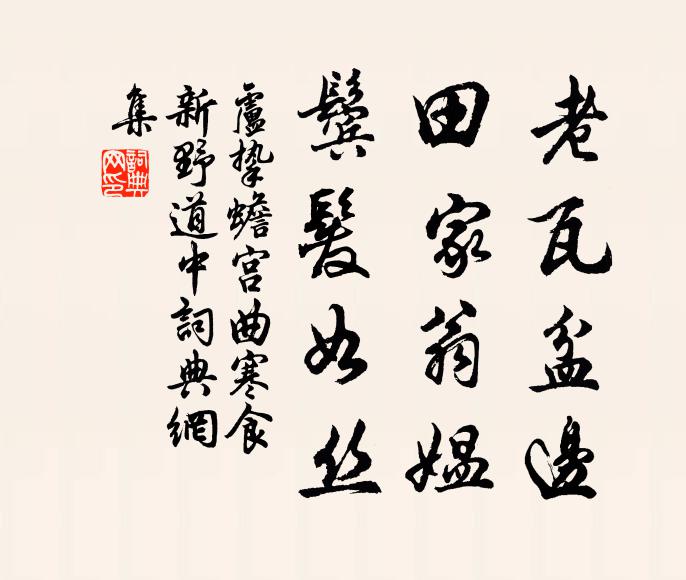 老瓦盆邊
田家翁媼
鬢髮如丝
盧摯蟾宮曲寒食
新野道中詞典網
集
詞典網印